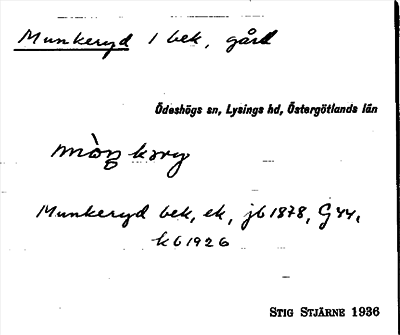 Munkeryd 1 bek, gård
Ödeshögs sn, Lysings hd, Östergötlands län
Munkeryd bek, ek, jb 1878, G44,
kb 1926
STIG STJÄRNE 1936